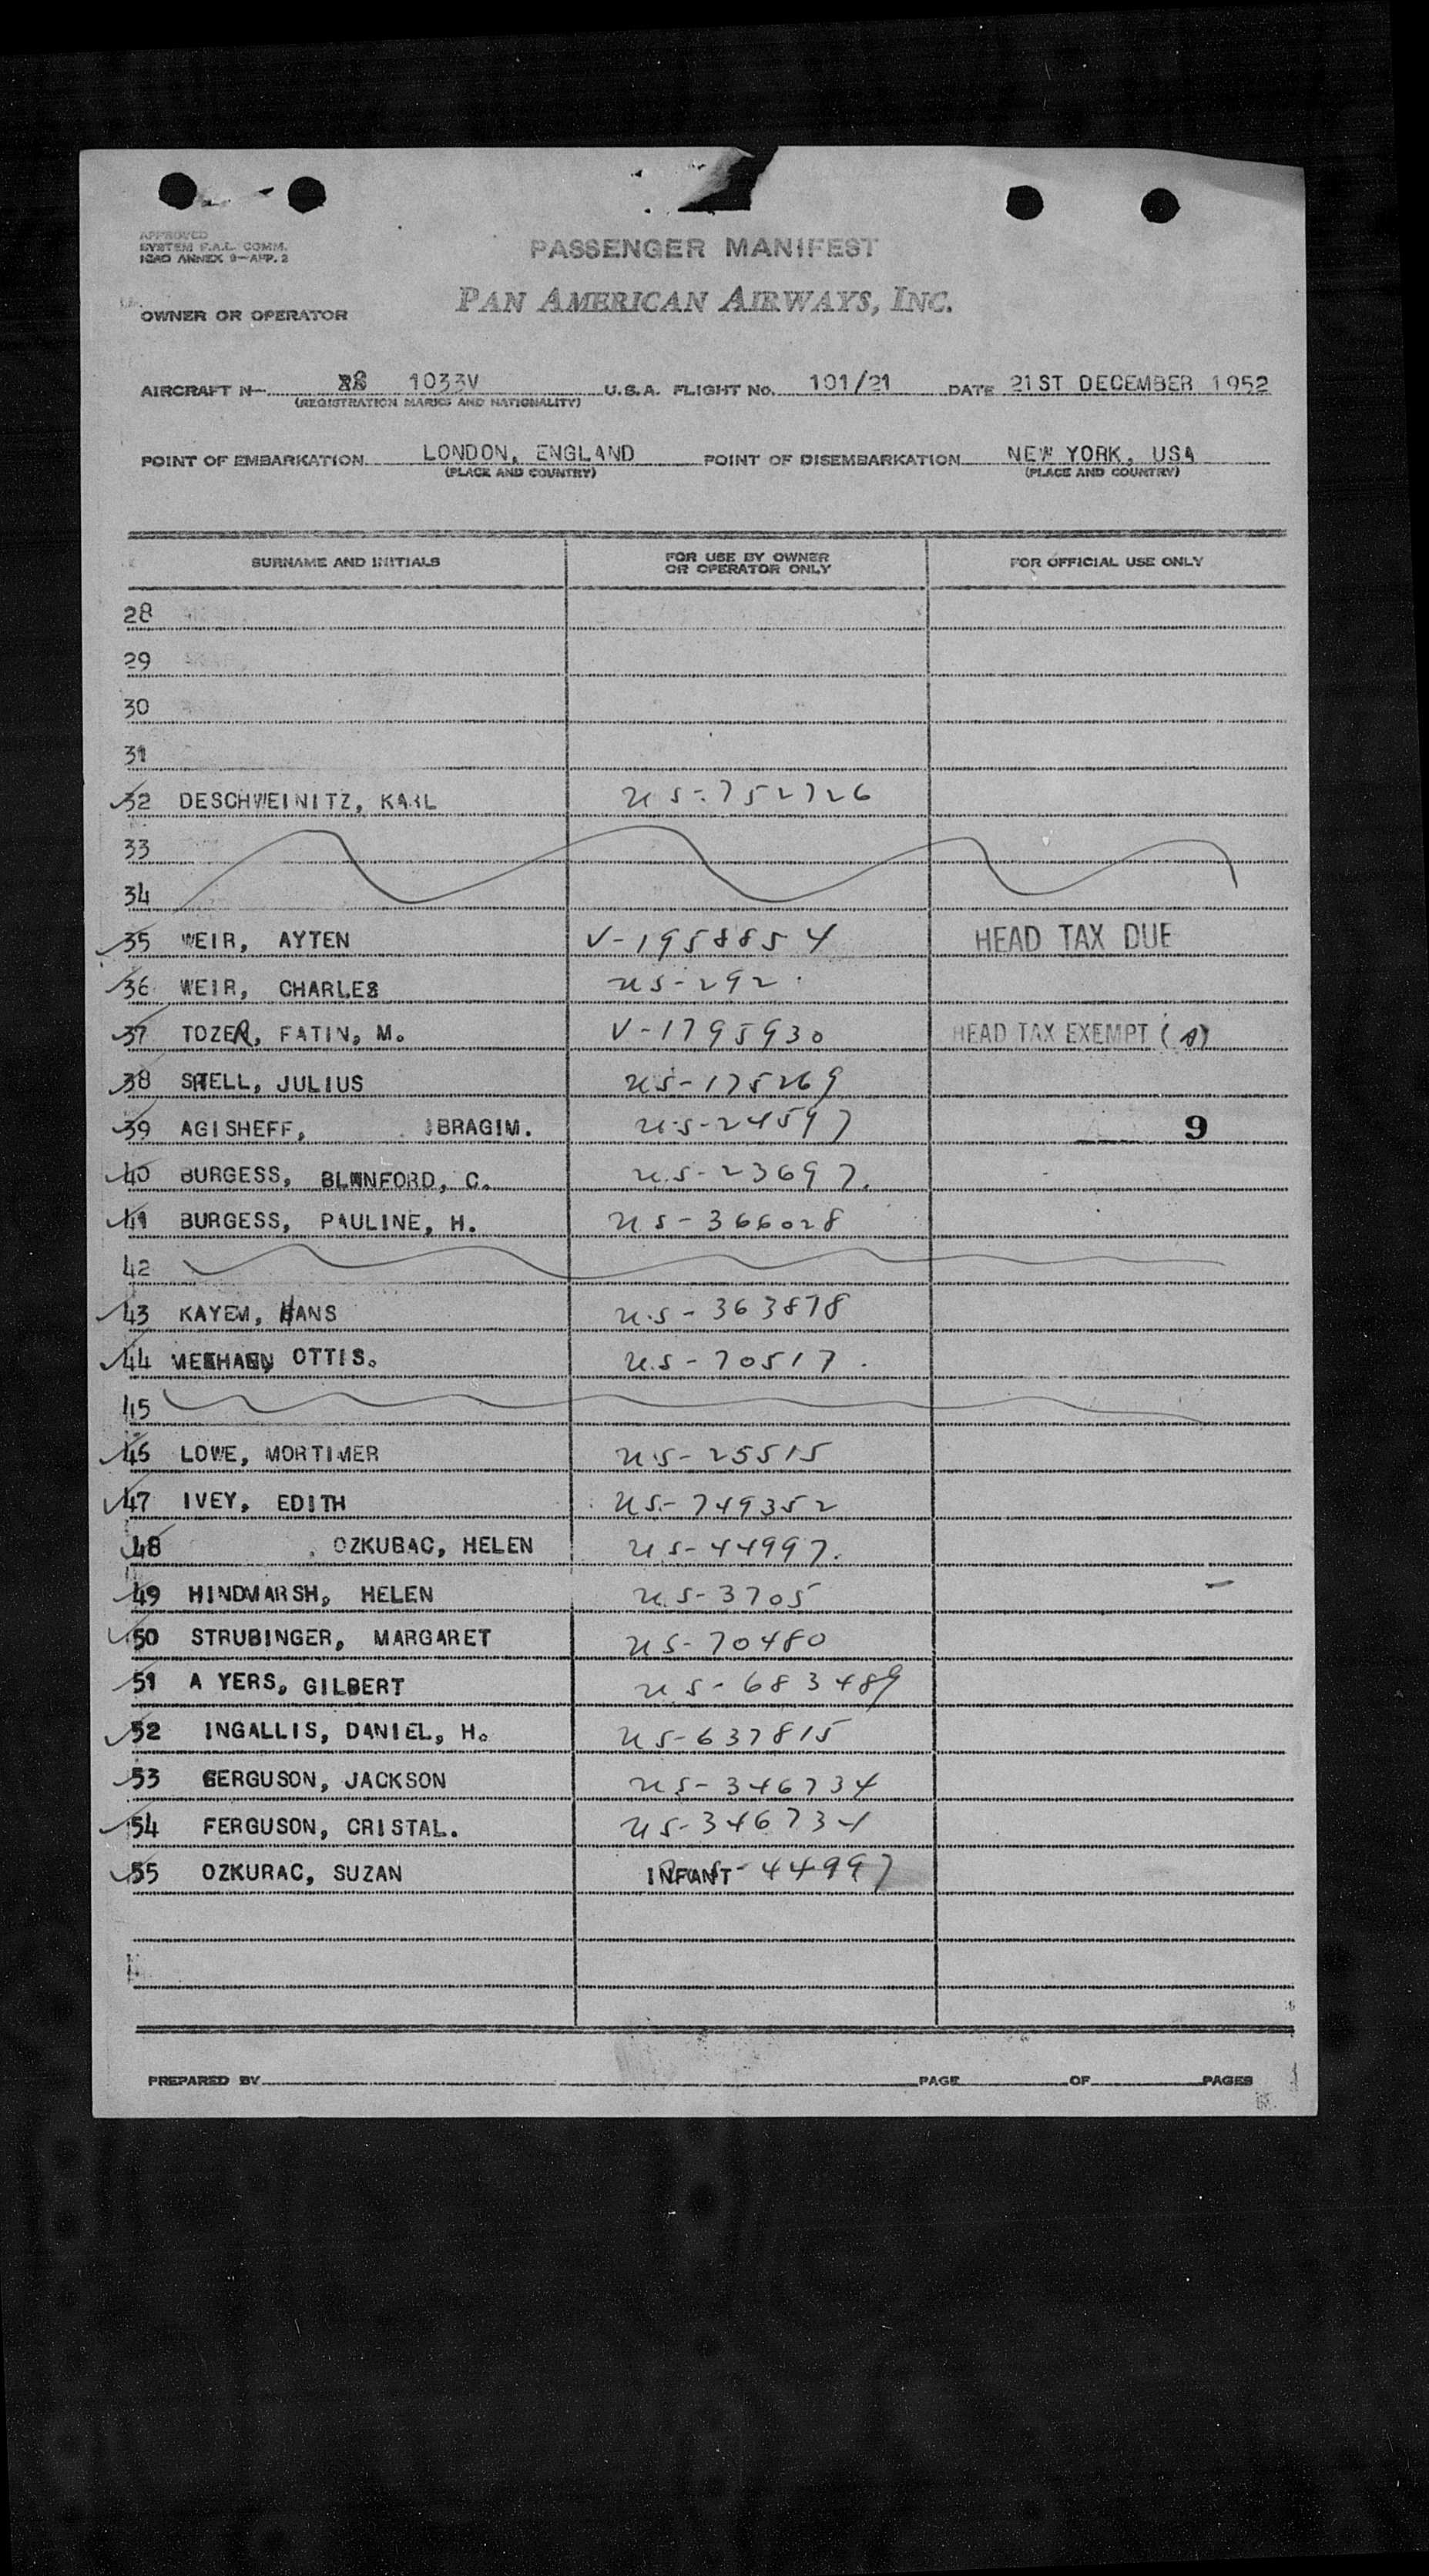 APPROVED
SYSTEM F.A.L. COMM.
ICAO ANNEX 9—APP. 2
PASSENGER MANIFEST
OWNER OR OPERATOR PAN AMERICAN AIRWAYS, INC.
AIRCRAFT N— 1033V U.S.A. FLIGHT NO. 101/21 DATE 21ST DECEMBER 1952
(REGISTRATION MARKS AND NATIONALITY)
POINT OF EMBARKATION LONDON, ENGLAND POINT OF DISEMBARKATION NEW YORK, USA
(PLACE AND COUNTRY) (PLACE AND COUNTRY)
SURNAME AND INITIALS FOR USE BY OWNER OR OPERATOR ONLY FOR OFFICIAL USE ONLY
28
29
30
31
32 DESCHWEINITZ, KARL US-752726
33
34
35 WEIR, AYTEN V-1958854 HEAD TAX DUE
36 WEIR, CHARLES US-292
37 TOZER, FATIN, M. V-1795930 HEAD TAX EXEMPT (A)
38 JULIUS US-175269
39 AGISHEFF, IBRAGIM. US-24597 9
40 BURGESS, BLANFORD, C. US-23697.
41 BURGESS, PAULINE, H. US-366028
42
43 KAYEM, HANS US-363878
44 OTTIS. US-70517.
45
46 LOWE, MORTIMER US-25515
47 IVEY, EDITH US-749352
48 OZKURAC, HELEN US-44997.
49 HINDMARSH, HELEN US-3705
50 STRUBINGER, MARGARET US-70480
51 A YERS, GILBERT US-683489
52 INGALLIS, DANIEL, H. US-637815
53 FERGUSON, JACKSON US-346734
54 FERGUSON, CRISTAL. US-346734
55 OZKURAC, SUZAN INFANT 44997
PREPARED BY PAGE OF PAGES